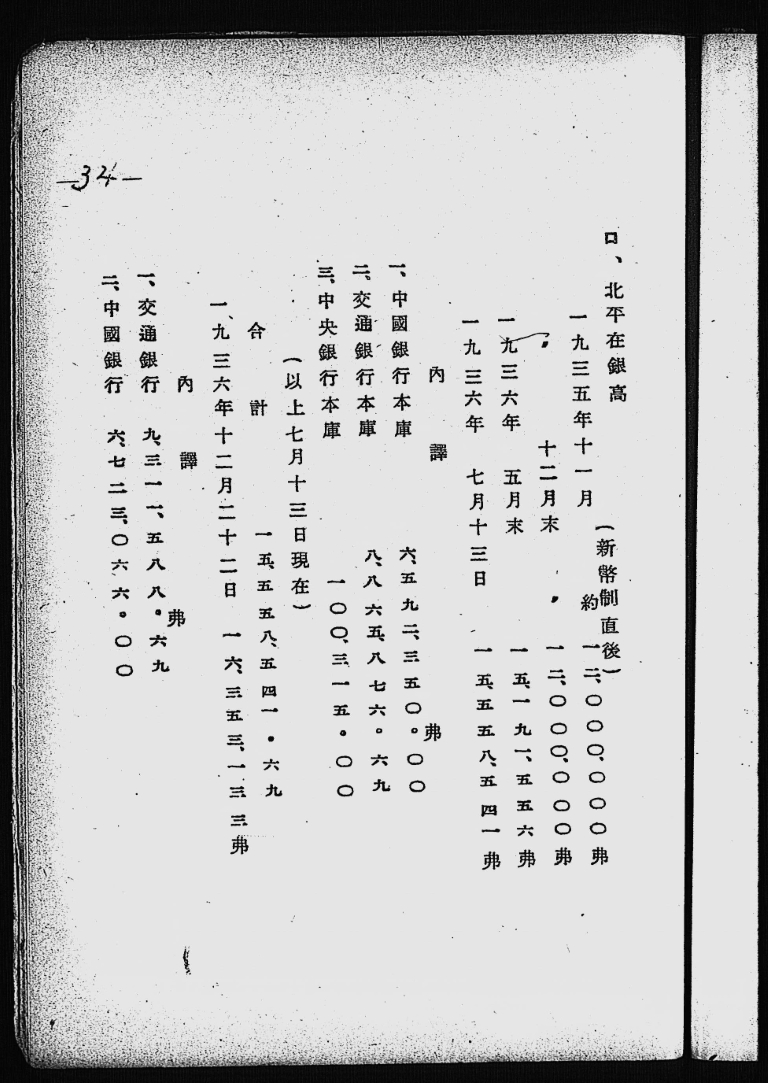 口、北平在銀高
一九三五年十一月(新幣制直後)約一二、〇〇〇、〇〇〇弗
〃十二月末〃一二、〇〇〇、〇〇〇弗
一九三六年五月末一五、一九一、五五六弗
一九三六年七月十三日一五、五五八、五四一弗
內譯弗
一、中國銀行本庫六、五九二、三五〇。〇〇
二、交通銀行本庫八、八六五、八七六。六九
三、中央銀行本庫一〇〇、三一五。〇〇
(以上七月十三日現在)
合計一五、五五八、五四一。六九
一、九三六年十二月二十二日一六、三五三、一三三弗
內譯弗
一、交通銀行九、三一一、五八八。六九
二、中國銀行六、七二三、〇六六。〇〇
—34—